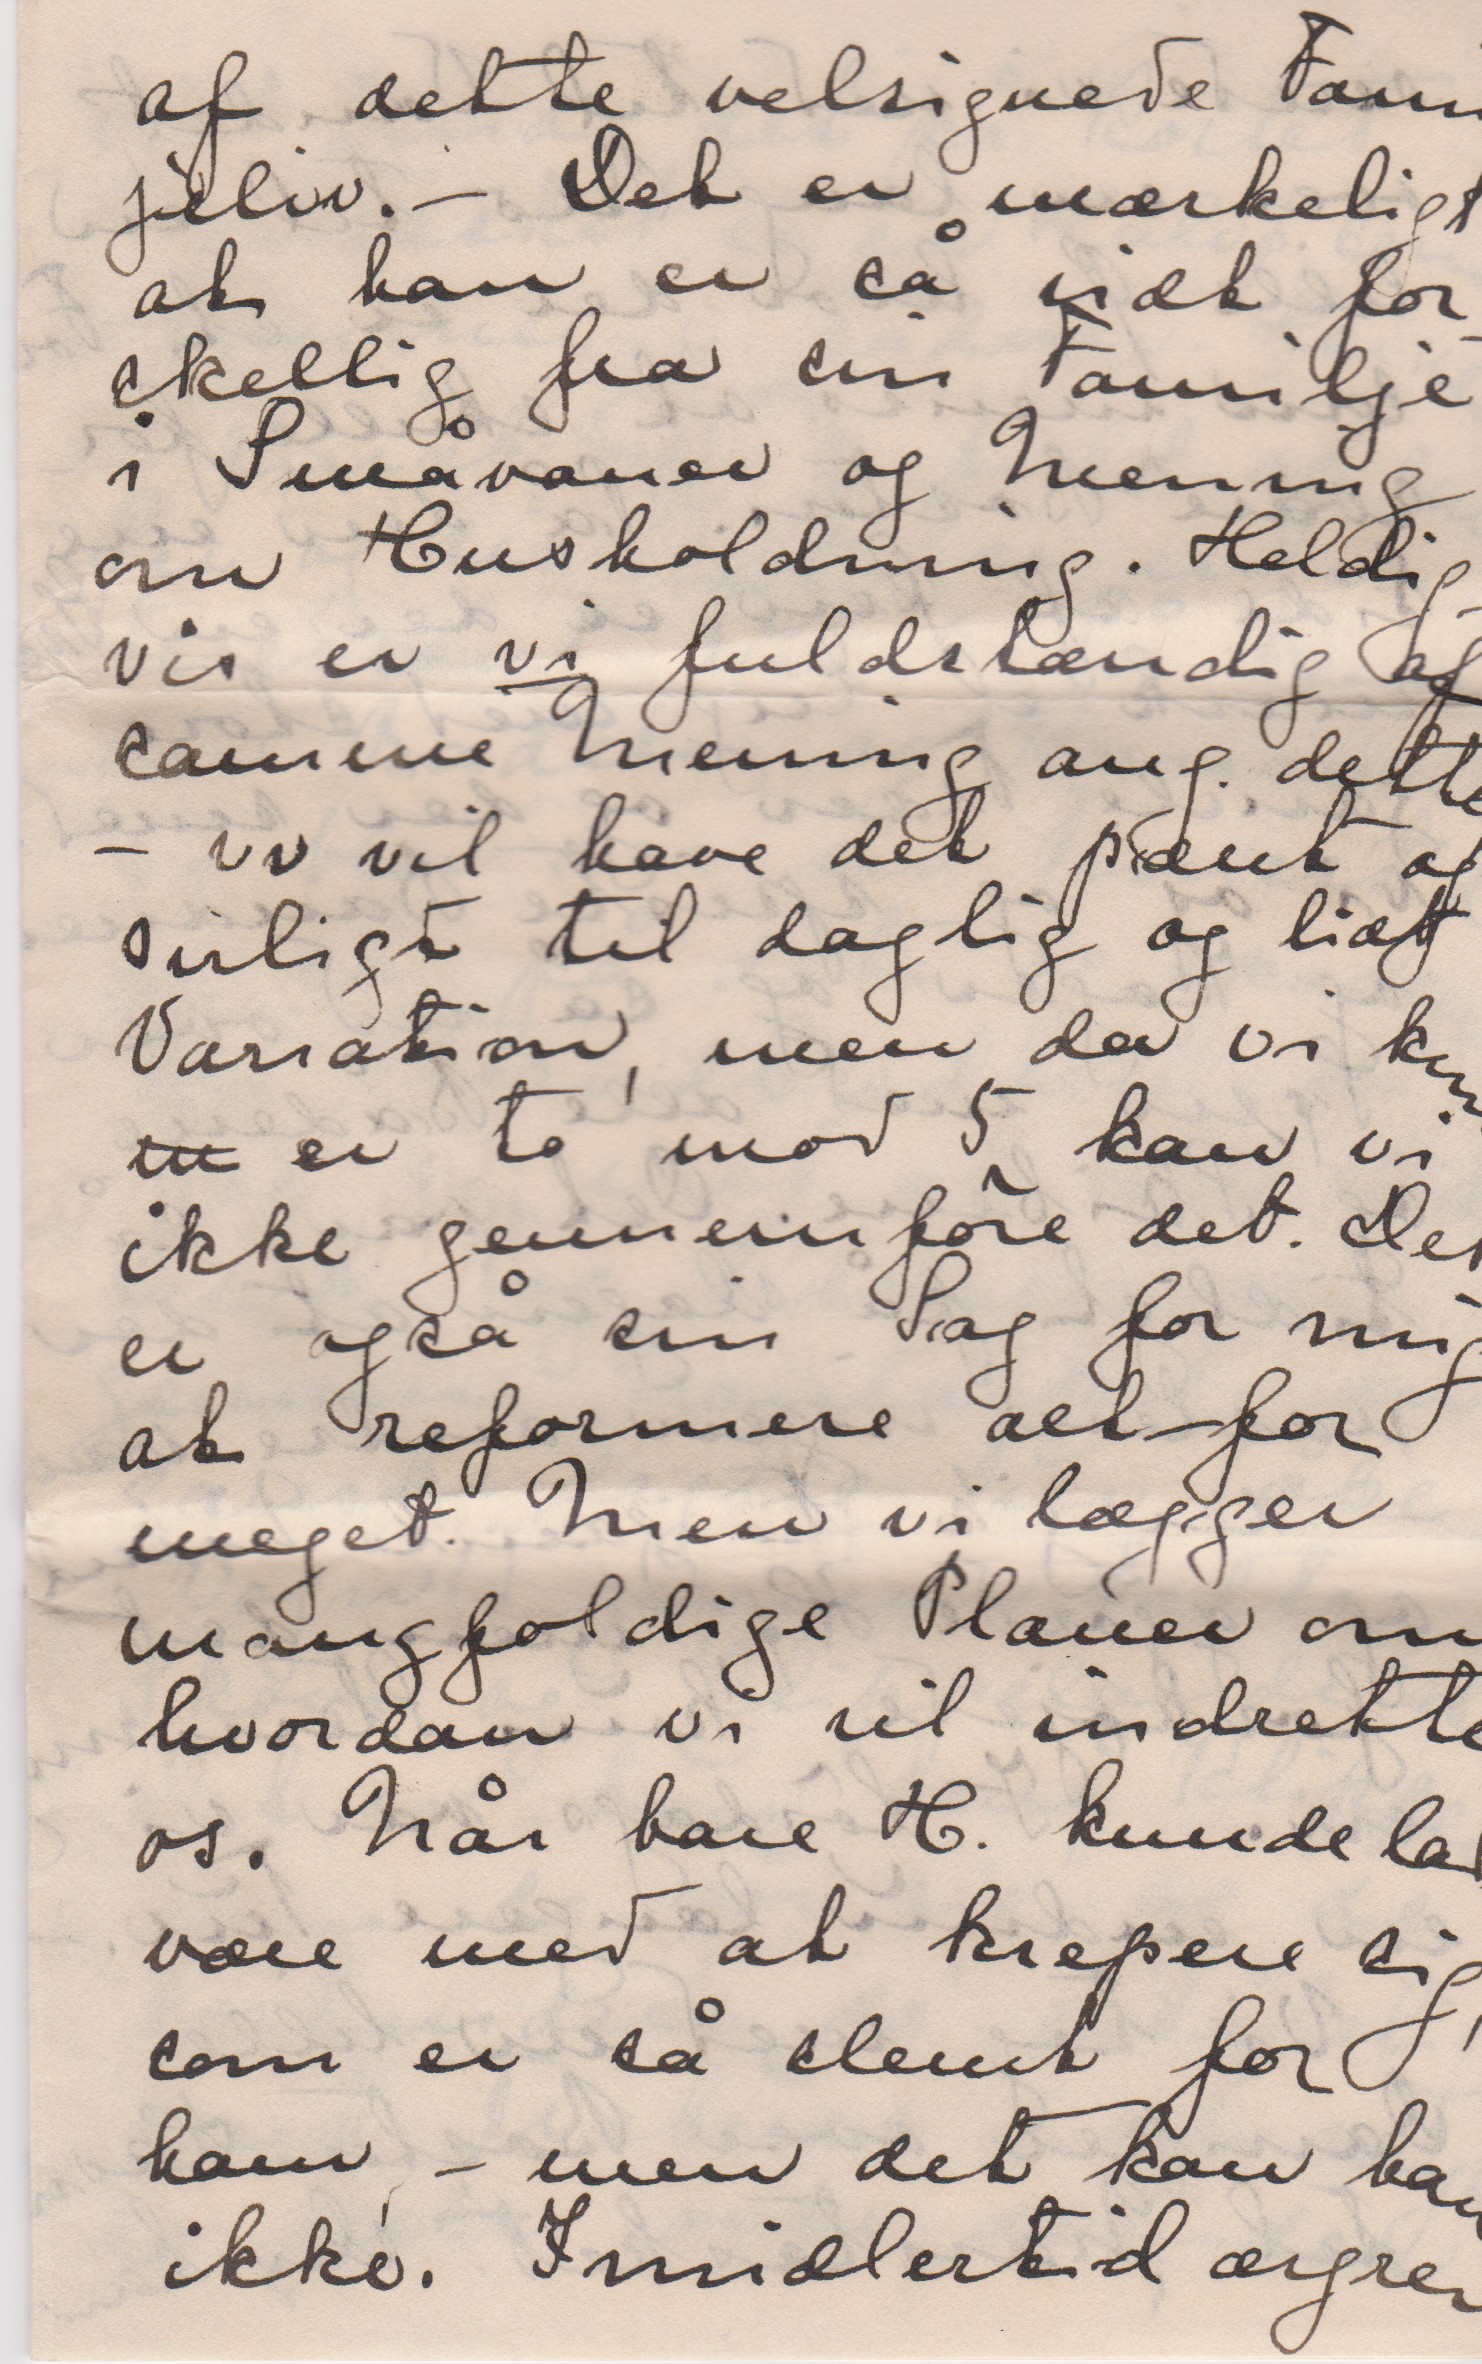 af dette velsignede Fami
jeliv. – Det er mærkeligt
at han er så vidt for
skellig fra sin Familje
i Småvaner og Mening
om Husholdning. Heldig-
vis er vi fuldstændig af
samme Mening ang. dette
– vi vil have det pænt og
sirligt til daglig og lidt
Variation, men da vi kun
er to mod 5 kan vi
ikke gennemföre det. Det
er også sin Sag for mig
at reformere alt for
meget. Men vi lægger
mangfoldige Planer om
hvordan vi vil indrette
os. Når bare H. kunde lad
være med at krepere sig,
som er så slemt for
ham, – men det kan han
ikke. Imidlertid ærgrer